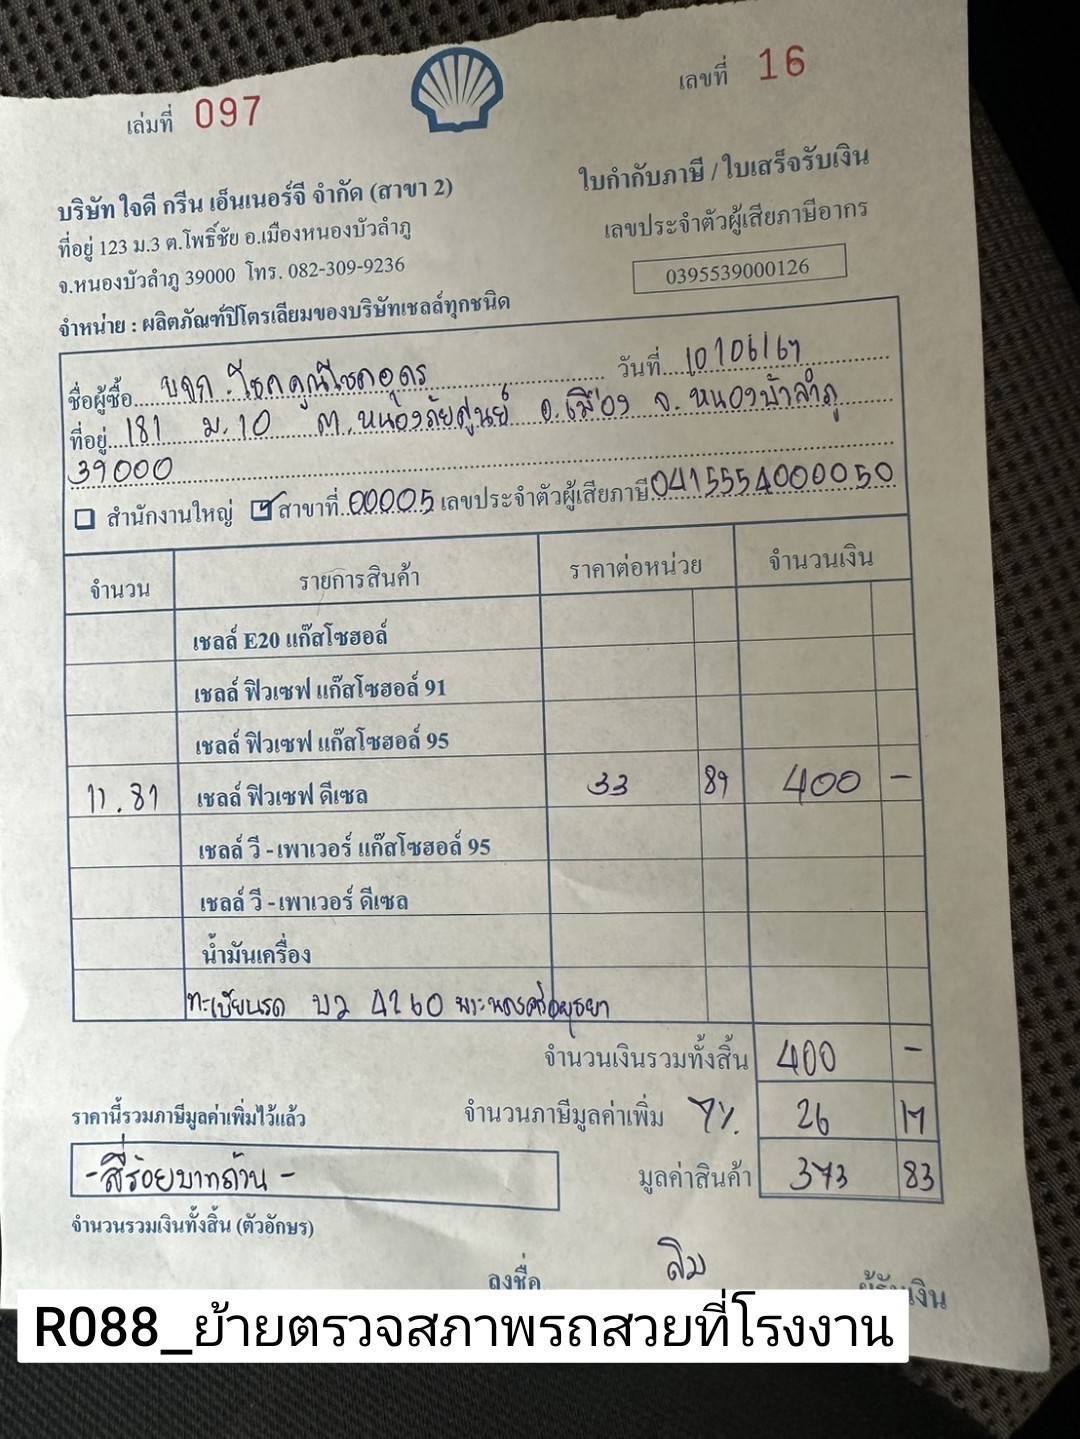 เล่มที่ 097
เลขที่ 16
บริษัท ใจดี กรีน เอ็นเนอร์จี จำกัด (สาขา 2)
ใบกำกับภาษี / ใบเสร็จรับเงิน
ที่อยู่ 123 ม.3 ต.โพธิ์ชัย อ.เมืองหนองบัวลำภู
เลขประจำตัวผู้เสียภาษีอากร
จ.หนองบัวลำภู 39000 โทร. 082-309-9236
0395539000126
จำหน่าย : ผลิตภัณฑ์ปิโตรเลียมของบริษัทเชลล์ทุกชนิด
ชื่อผู้ซื้อ บจก. โชคคูณโชคอุดร วันที่ 10/06/67
ที่อยู่ 181 ม.10 ต.หนองภัยศูนย์ อ.เมือง จ.หนองบัวลำภู
39000
สำนักงานใหญ่ สาขาที่ 00005 เลขประจำตัวผู้เสียภาษี 0415554000050
จำนวน รายการสินค้า ราคาต่อหน่วย จำนวนเงิน
เชลล์ E20 แก๊สโซฮอล์
เชลล์ ฟิวเซฟ แก๊สโซฮอล์ 91
เชลล์ ฟิวเซฟ แก๊สโซฮอล์ 95
11.81 เชลล์ ฟิวเซฟ ดีเซล 33 89 400 -
เชลล์ วี - เพาเวอร์ แก๊สโซฮอล์ 95
เชลล์ วี - เพาเวอร์ ดีเซล
น้ำมันเครื่อง
ทะเบียนรถ บว 4260 พระนครศรีอยุธยา
จำนวนเงินรวมทั้งสิ้น 400 -
ราคานี้รวมภาษีมูลค่าเพิ่มไว้แล้ว จำนวนภาษีมูลค่าเพิ่ม 7% 26 17
- สี่ร้อยบาทถ้วน - มูลค่าสินค้า 373 83
จำนวนรวมเงินทั้งสิ้น (ตัวอักษร)
ลงชื่อ ลิม ผู้รับเงิน
R088_ย้ายตรวจสภาพรถสวยที่โรงงาน